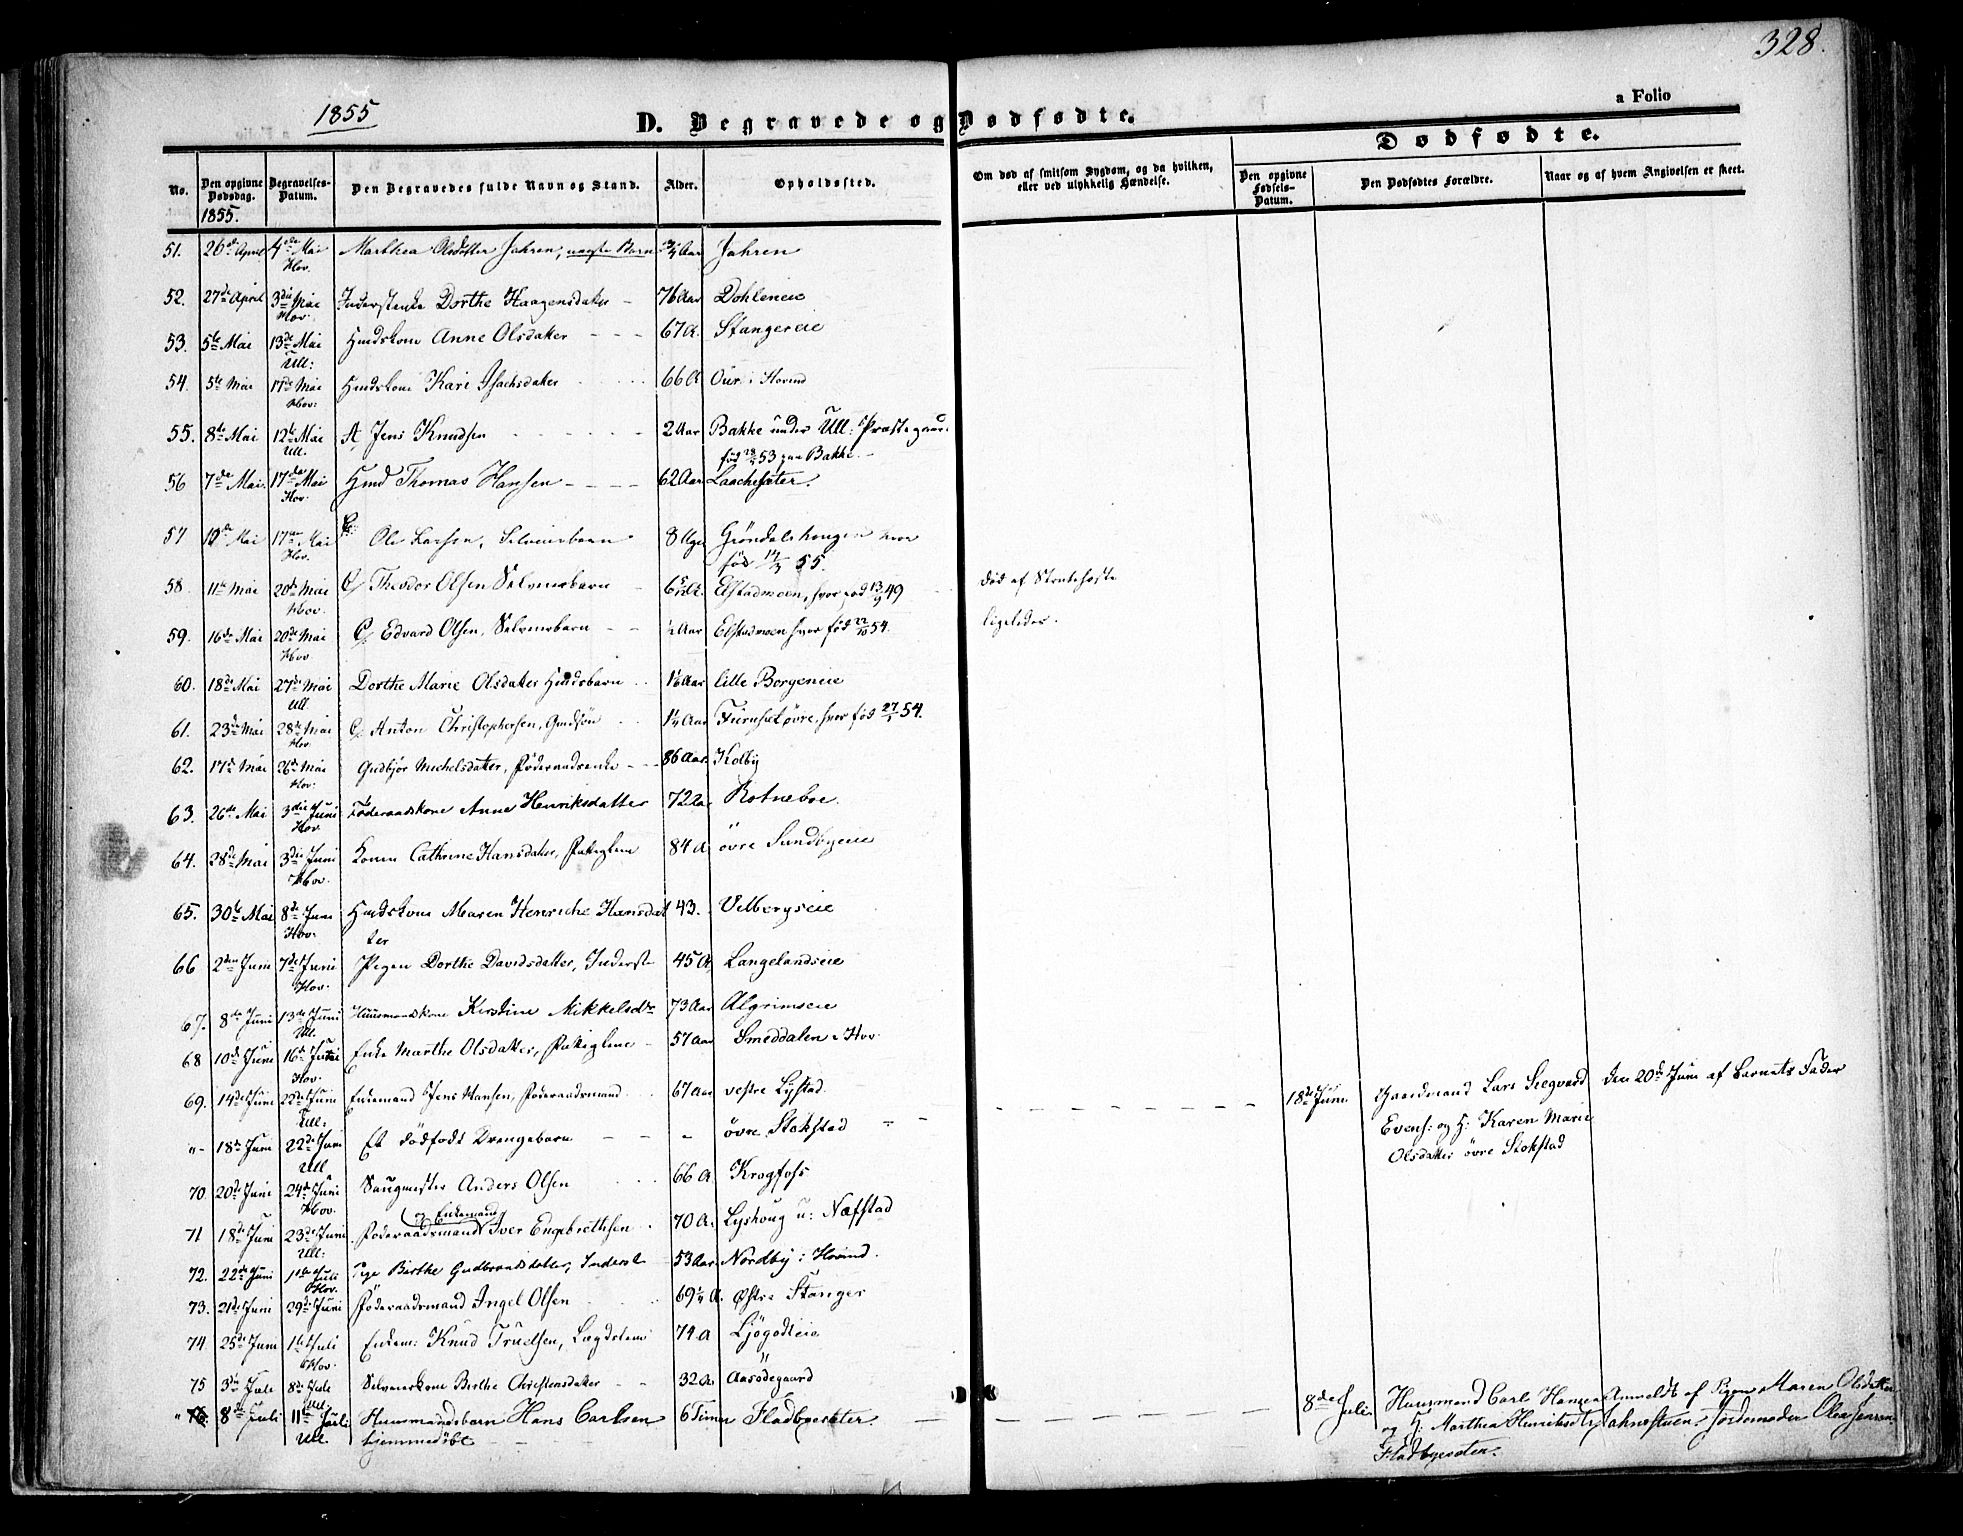 328.
a Folio
1855
D. Begravede og Dødfødte.
Dødfødte.
No.
Den opgivne Dødsdag.
Begravelses-Datum.
Den Begravedes fulde Navn og Stand.
Alder.
Opholdssted.
Om død af smitsom Sygdom, og da hvilken, eller ved ulykkelig Hændelse.
Den opgivne Fødsels-Datum.
Den Dødfødtes Forældre.
Naar og af hvem Angivelsen er skeet.
1855.
51. 26de April 4de Mai Marthea Olsdatter Jahren, Aar Jahren
Hov.
52. 27de April 3die Mai Inderstenke Dorthe Haagensdatter - 76 Aar Dohleneie
Hov.
53. 5te Mai 13de Mai Huuskone Anne Olsdatter - - - 67 A. Stangereie
Ull:
54. 5te Mai 17de Mai Kari Isachsdatter 66 A Our i Hovind
Hov:
55. 8de Mai 12te Mai Jens Knudsen 2 Aar Bakke under Ull: Præstegaar
Ull. 53 paa Bakke -
56 7de Mai. 17de Mai Hmd Thomas Hansen - - - - 62 Aar Laachesæter.
Hov.
57 Mai 17de Mai Ole Larsen, Selveiersbarn 8 Uger Grøndalshougen hvor
Hov. født 14/3 55.
58. 11te Mai 20de Mai Theodor Olsen Selveiersbarn - Elstadmoen, hvor fød 13/9 49 død af Strubehoste
Hov.
59. 16de Mai 20de Mai Edvard Olsen, Selveiersbarn - - ½ Aar Elstadmoen hvor fød 22/10 54. ligeledes.
Hov
60. 18de Mai 27de Mai Dorthe Marie Olsdatter Hmdsbarn Aar lille Borgeneie
Ull
61. 23de Mai 28de Mai Anton Christophersen, Gmdsøn Aar Furuset øvre, hvor fød 27/1 54.
Hov.
62. 17de Mai 26de Mai Gudbjør Michelsdatter, Føderaadsenke - - 86 Aar. Kolby
Hov.
63. 26de Mai 3die Juni Føderaadskone Anne Henriksdatter 72 Aar Rotneboe.
Hov.
64. 28de Mai 3die Juni Konen Cathrine Hansdatter, 84 A øvre Sundbyeie
Hov.
65. 30te Mai 8de Juni Maren Henriche Hansdat 43. Velbergseie
Hov. ter
66 2den Juni 7de Juni Pigen Dorthe Davidsdatter, Inderst 45 A Langelandseie
Hov.
67. 8de Juni 13de Juni Huusmandskone Kirstine Mikkelsdtr 73 Aar Algrimseie
Ull.
68 10de Juni 16de Juni Enke Marthe Olsdatter, - 57 Aar Smeddalen i Hov.
Hov.
69. 14de Juni 22de Juni Enkemand Jens Hansen, Føderaadsmand 67 Aar vestre Lystad
Ull:
"- 18de Juni 22de Juni Et dødfødt Drengebarn - - - øvre Stokstad - - 18de Juni. Gaardmand Lars Seegvard den 20de Juni af Barnets Fader
Ull Evens: og H: Karen Marie
Olsdatter øvre Stokstad
70. 20de Juni 24de Juni Saugmester Anders Olsen 66 A. Krogfoss
Hov.
og Enkemand
71 18de Juni 23de Juni Føderaadsmand Iver Engebrethsen 70 A. Lyshoug u: Næfstad
Ull:
72. 22de Juni 1ste Juli Pige Birthe Gudbrandsdatter, Inderst 53 Aar. Nordby i Hovind.
Hov.
73. 21de Juni 29de Juni Føderaadsmand Ingel Olsen 69¼ A. Østre Stanger
74 25de Juni 1ste Juli Enkem: Knud Truelsen, Lægdslem 74 A Ljøgodteie
Hov.
75 3de Juli 8de Juli Selveierkone Birthe Christensdatter - - 32 A. Aasødegaard
Ull.
" 8de Juli 11te Juli Huusmandsbarn Hans Carlsen 6 Timer Fladbyesæter - - 8de Juli. Huusmand Carl Hansen Anmeldt af Pigen Maren Olsdatter
Ull. hjemmedøbt - og H: Marthea Henriksdtr Jahrestuen. Jordemoder Olea Jensen
Fladbyesæter.